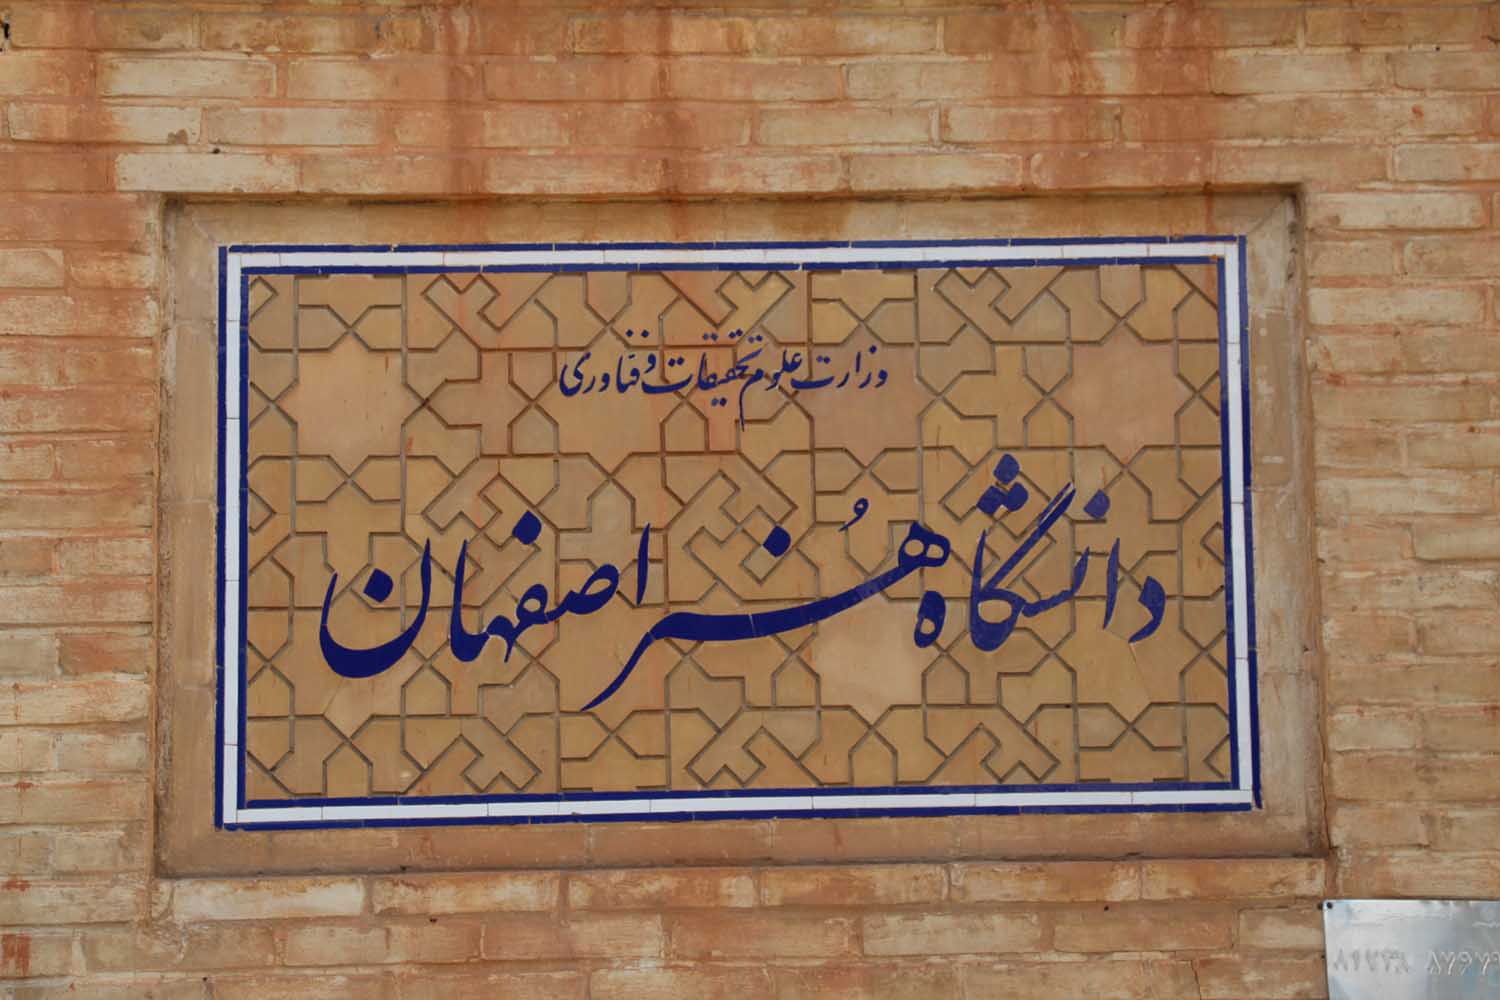 وزارت علوم تحقیقات و فنّاوری
دانشگاه هُنر اصفهان